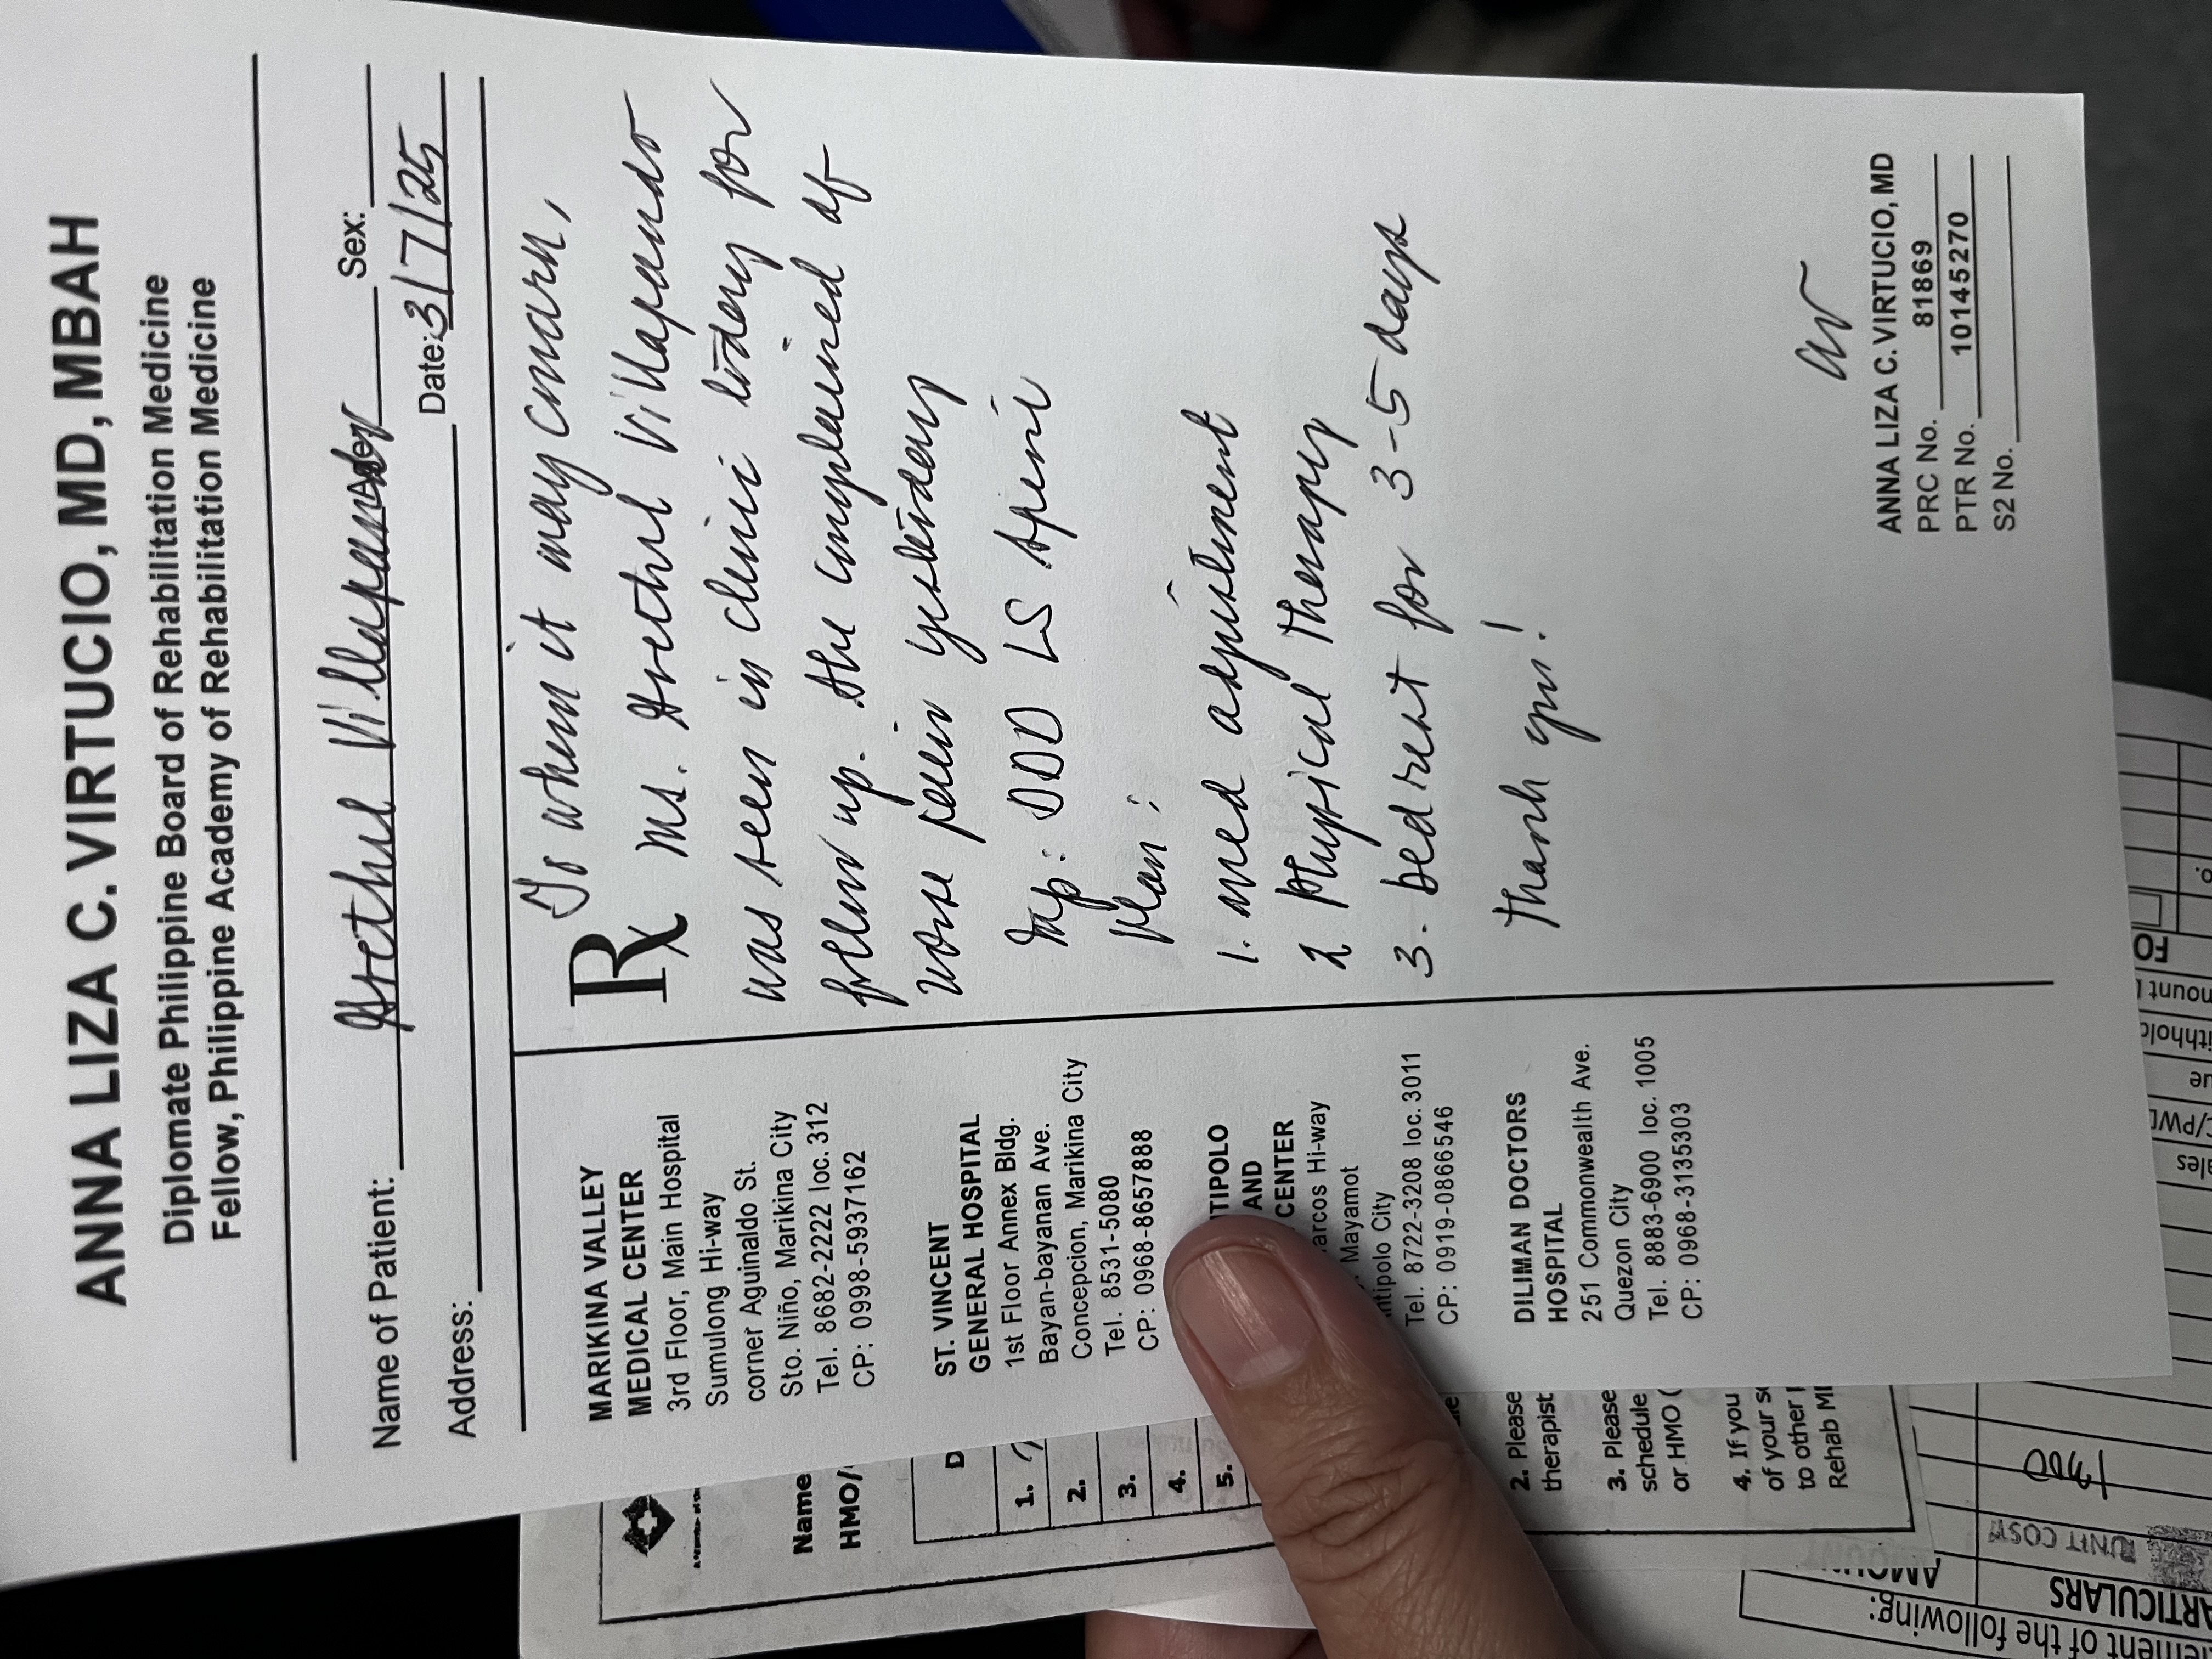 ANNA LIZA C. VIRTUCIO, MD, MBAH
Diplomate Philippine Board of Rehabilitation Medicine
Fellow, Philippine Academy of Rehabilitation Medicine
Name of Patient: Grethel Villapando Sex:
Address: Date: 3/7/25
MARIKINA VALLEY
MEDICAL CENTER
3rd Floor, Main Hospital
Sumulong Hi-way
corner Aguinaldo St.
Sto. Niño, Marikina City
Tel. 8682-2222 loc. 312
CP: 0998-5937162
ST. VINCENT
GENERAL HOSPITAL
1st Floor Annex Bldg.
Bayan-bayanan Ave.
Concepcion, Marikina City
Tel. 8531-5080
CP: 0968-8657888
TIPOLO
AND
CENTER
arcos Hi-way
Mayamot
ntipolo City
Tel. 8722-3208 loc. 3011
CP: 0919-0866546
DILIMAN DOCTORS
HOSPITAL
251 Commonwealth Ave.
Quezon City
Tel. 8883-6900 loc. 1005
CP: 0968-3135303
Rx
To whom it may concern,
Ms. Grethel Villapando
was seen in clinic today for
follow up. She complained of
worse pain yesterday
Imp: DDD LS spine
Plan:
1. med adjustment
2 Physical therapy
3. bedrest for 3-5 days
Thank you!
ANNA LIZA C. VIRTUCIO, MD
PRC No. 81869
PTR No. 10145270
S2 No.
Name
HMO/
D
1.
2.
3.
4.
5.
2. Please
therapist
3. Please
schedule
or HMO (
4. If you
of your s
to other
Rehab M
ement of the following:
ARTICULARS
AMOUN
UNIT COST
1300
ales
C/PWD
ue
ithhold
mount
FO